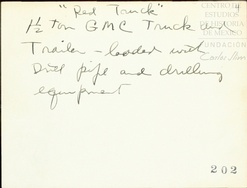 "Red Truck"
1½ ton GMC Truck and
Trailer - loaded with
Drill pipe and drilling
equipment
CENTRO
DE ESTUDIOS
DE HISTORIA
DE MEXICO
FUNDACIÓN
Carlos Slim
202